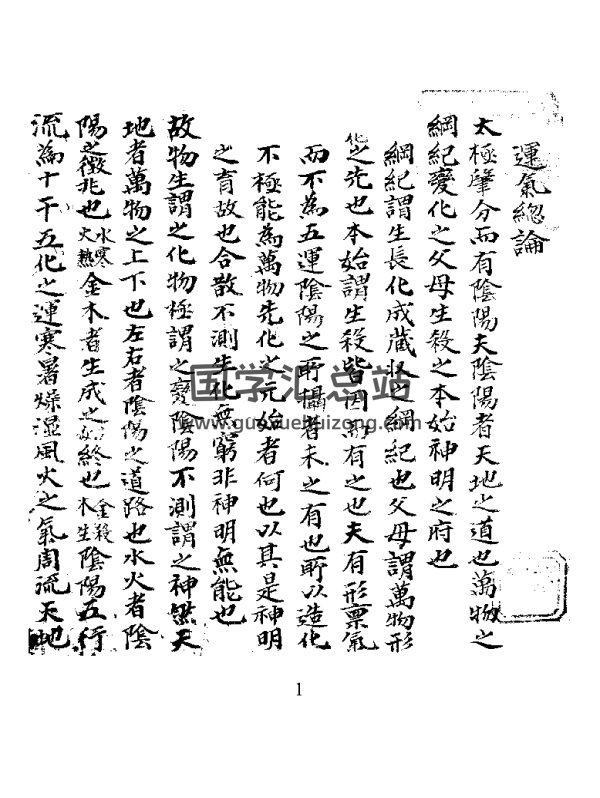 運氣總論
太極肇分而有陰陽夫陰陽者天地之道也萬物之
綱紀變化之父母生殺之本始神明之府也
綱紀謂生長化成藏收之綱紀也父母謂萬物形
之先也本始謂生殺皆因而有之也夫有形禀氣
而不為五運陰陽之所攝者未之有也所以造化
不極能為萬物先化之元始者何也以其是神明
之育故也合散不測生化無窮非神明無能也
故物生謂之化物極謂之變陰陽不測謂之神無天
地者萬物之上下也左右者陰陽之道路也水火者陰
陽之徵兆也水寒火熱金木者生成之終也金殺木生陰陽五行
流為十干五化之運寒暑燥湿風火之氣周流天地
国学汇总站
www.guoxuehuizong.com
1